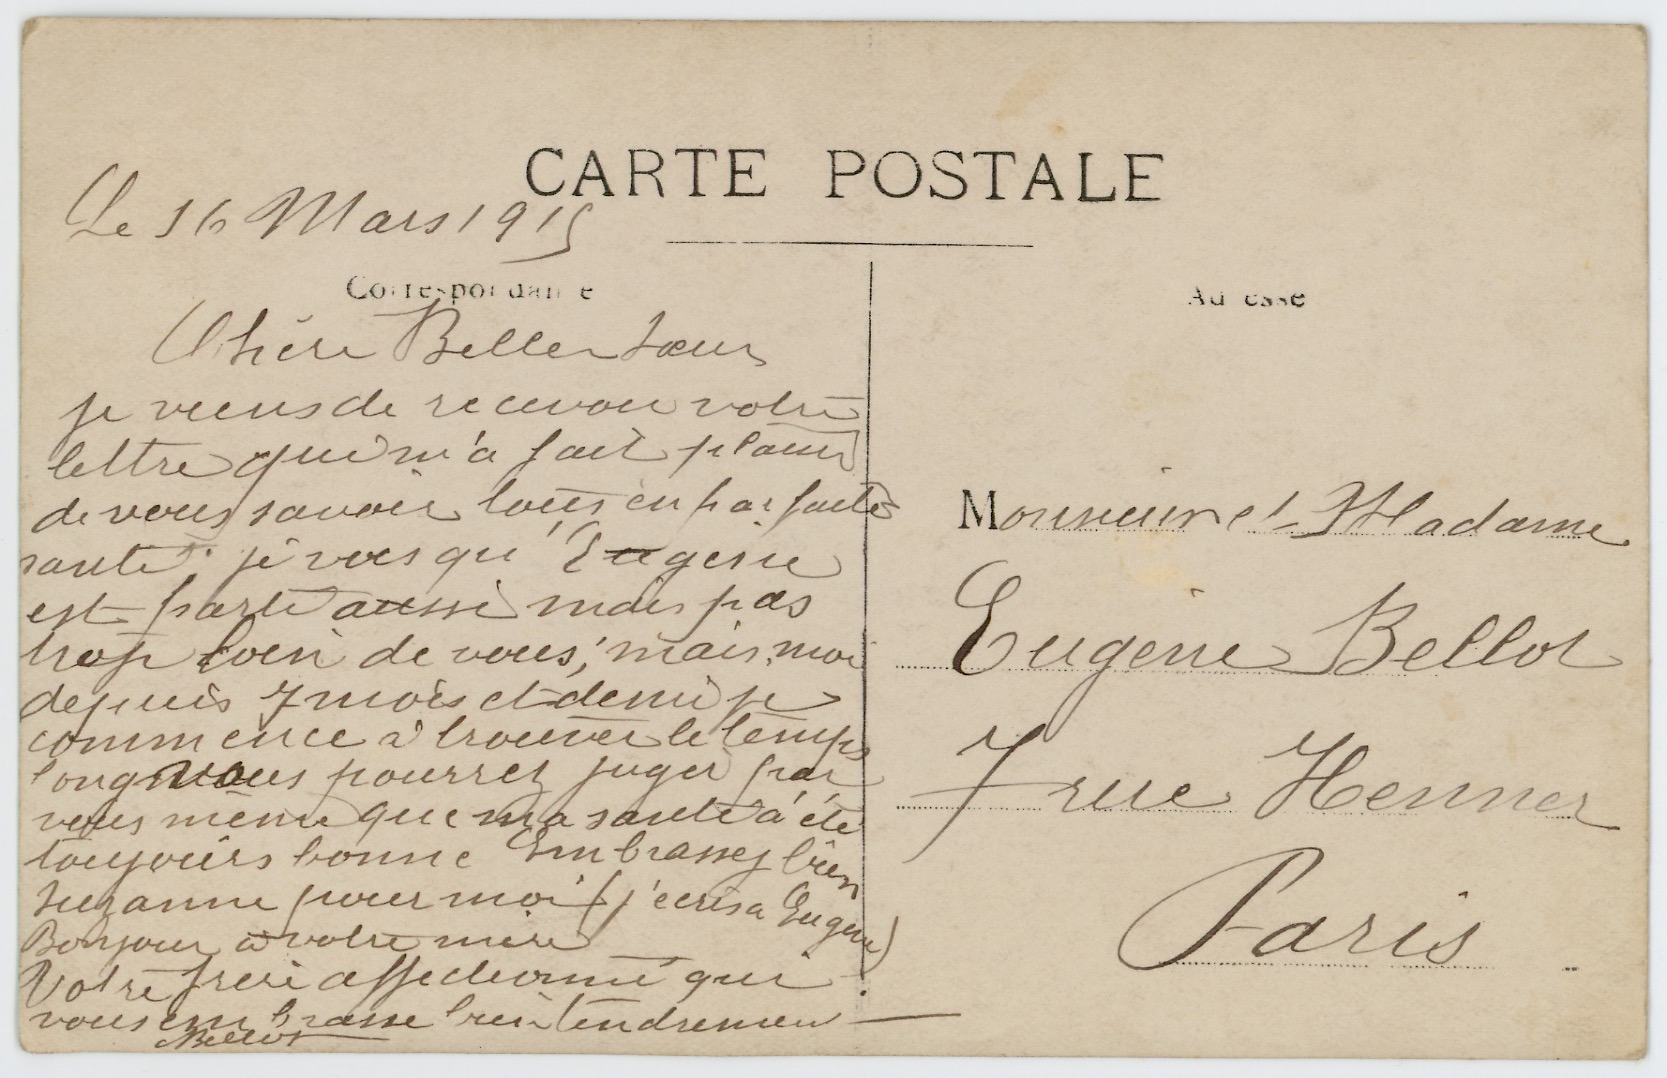 CARTE POSTALE
Le 16 Mars 1915
Correspondance
Chère Belle Sœur
je viens de recevoir votre
lettre qui m'a fait plaisir
de vous savoir tous en parfaite
santé. je vois qu'Eugène
est parti aussi mais pas
trop loin de vous, mais moi
depuis 7 mois et demi je
commence à trouver le temps
long vous pourrez juger par
vous même que ma santé a été
toujours bonne Embrassez bien
Suzanne pour moi (j'écris a Eugène)
Bonjour à votre mère
Votre frère affectionné qui
vous embrasse bien tendrement
Bellot
Adresse
Monsieur et Madame
Eugène Bellot
7 rue Henner
Paris